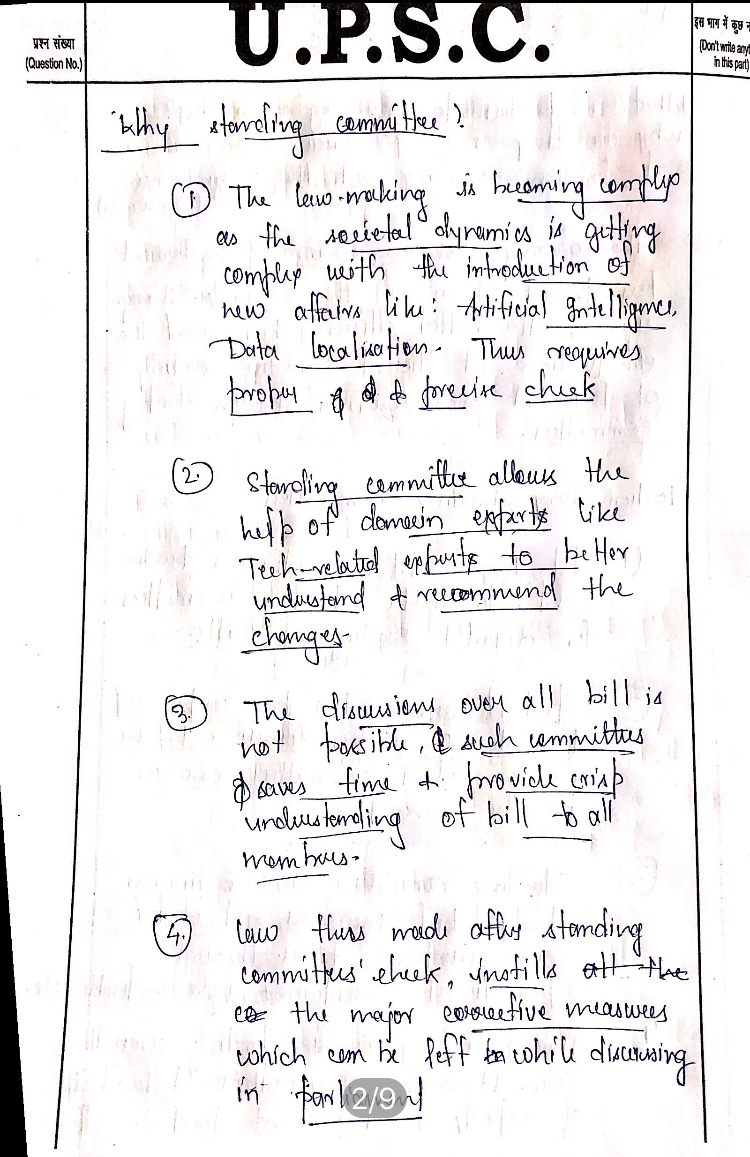 U.P.S.C.
प्रश्न संख्या
(Question No.)
इस भाग में कुछ न
(Don't write any
in this part)
Why standing committee?
1. The law-making is becoming complex
as the societal dynamics is getting
complex with the introduction of
new affairs like: Artificial Intelligence,
Data localisation. Thus requires
proper & precise check
2. Standing committee allows the
help of domain experts like
Tech-related experts to better
understand & recommend the
changes.
3. The discussions over all bill is
not possible, such committees
saves time & provide crisp
understanding of bill to all
members.
4. law thus made after standing
committees' check, instills all the
the major corrective measures
which can be left while discussing
in parliament
2/9